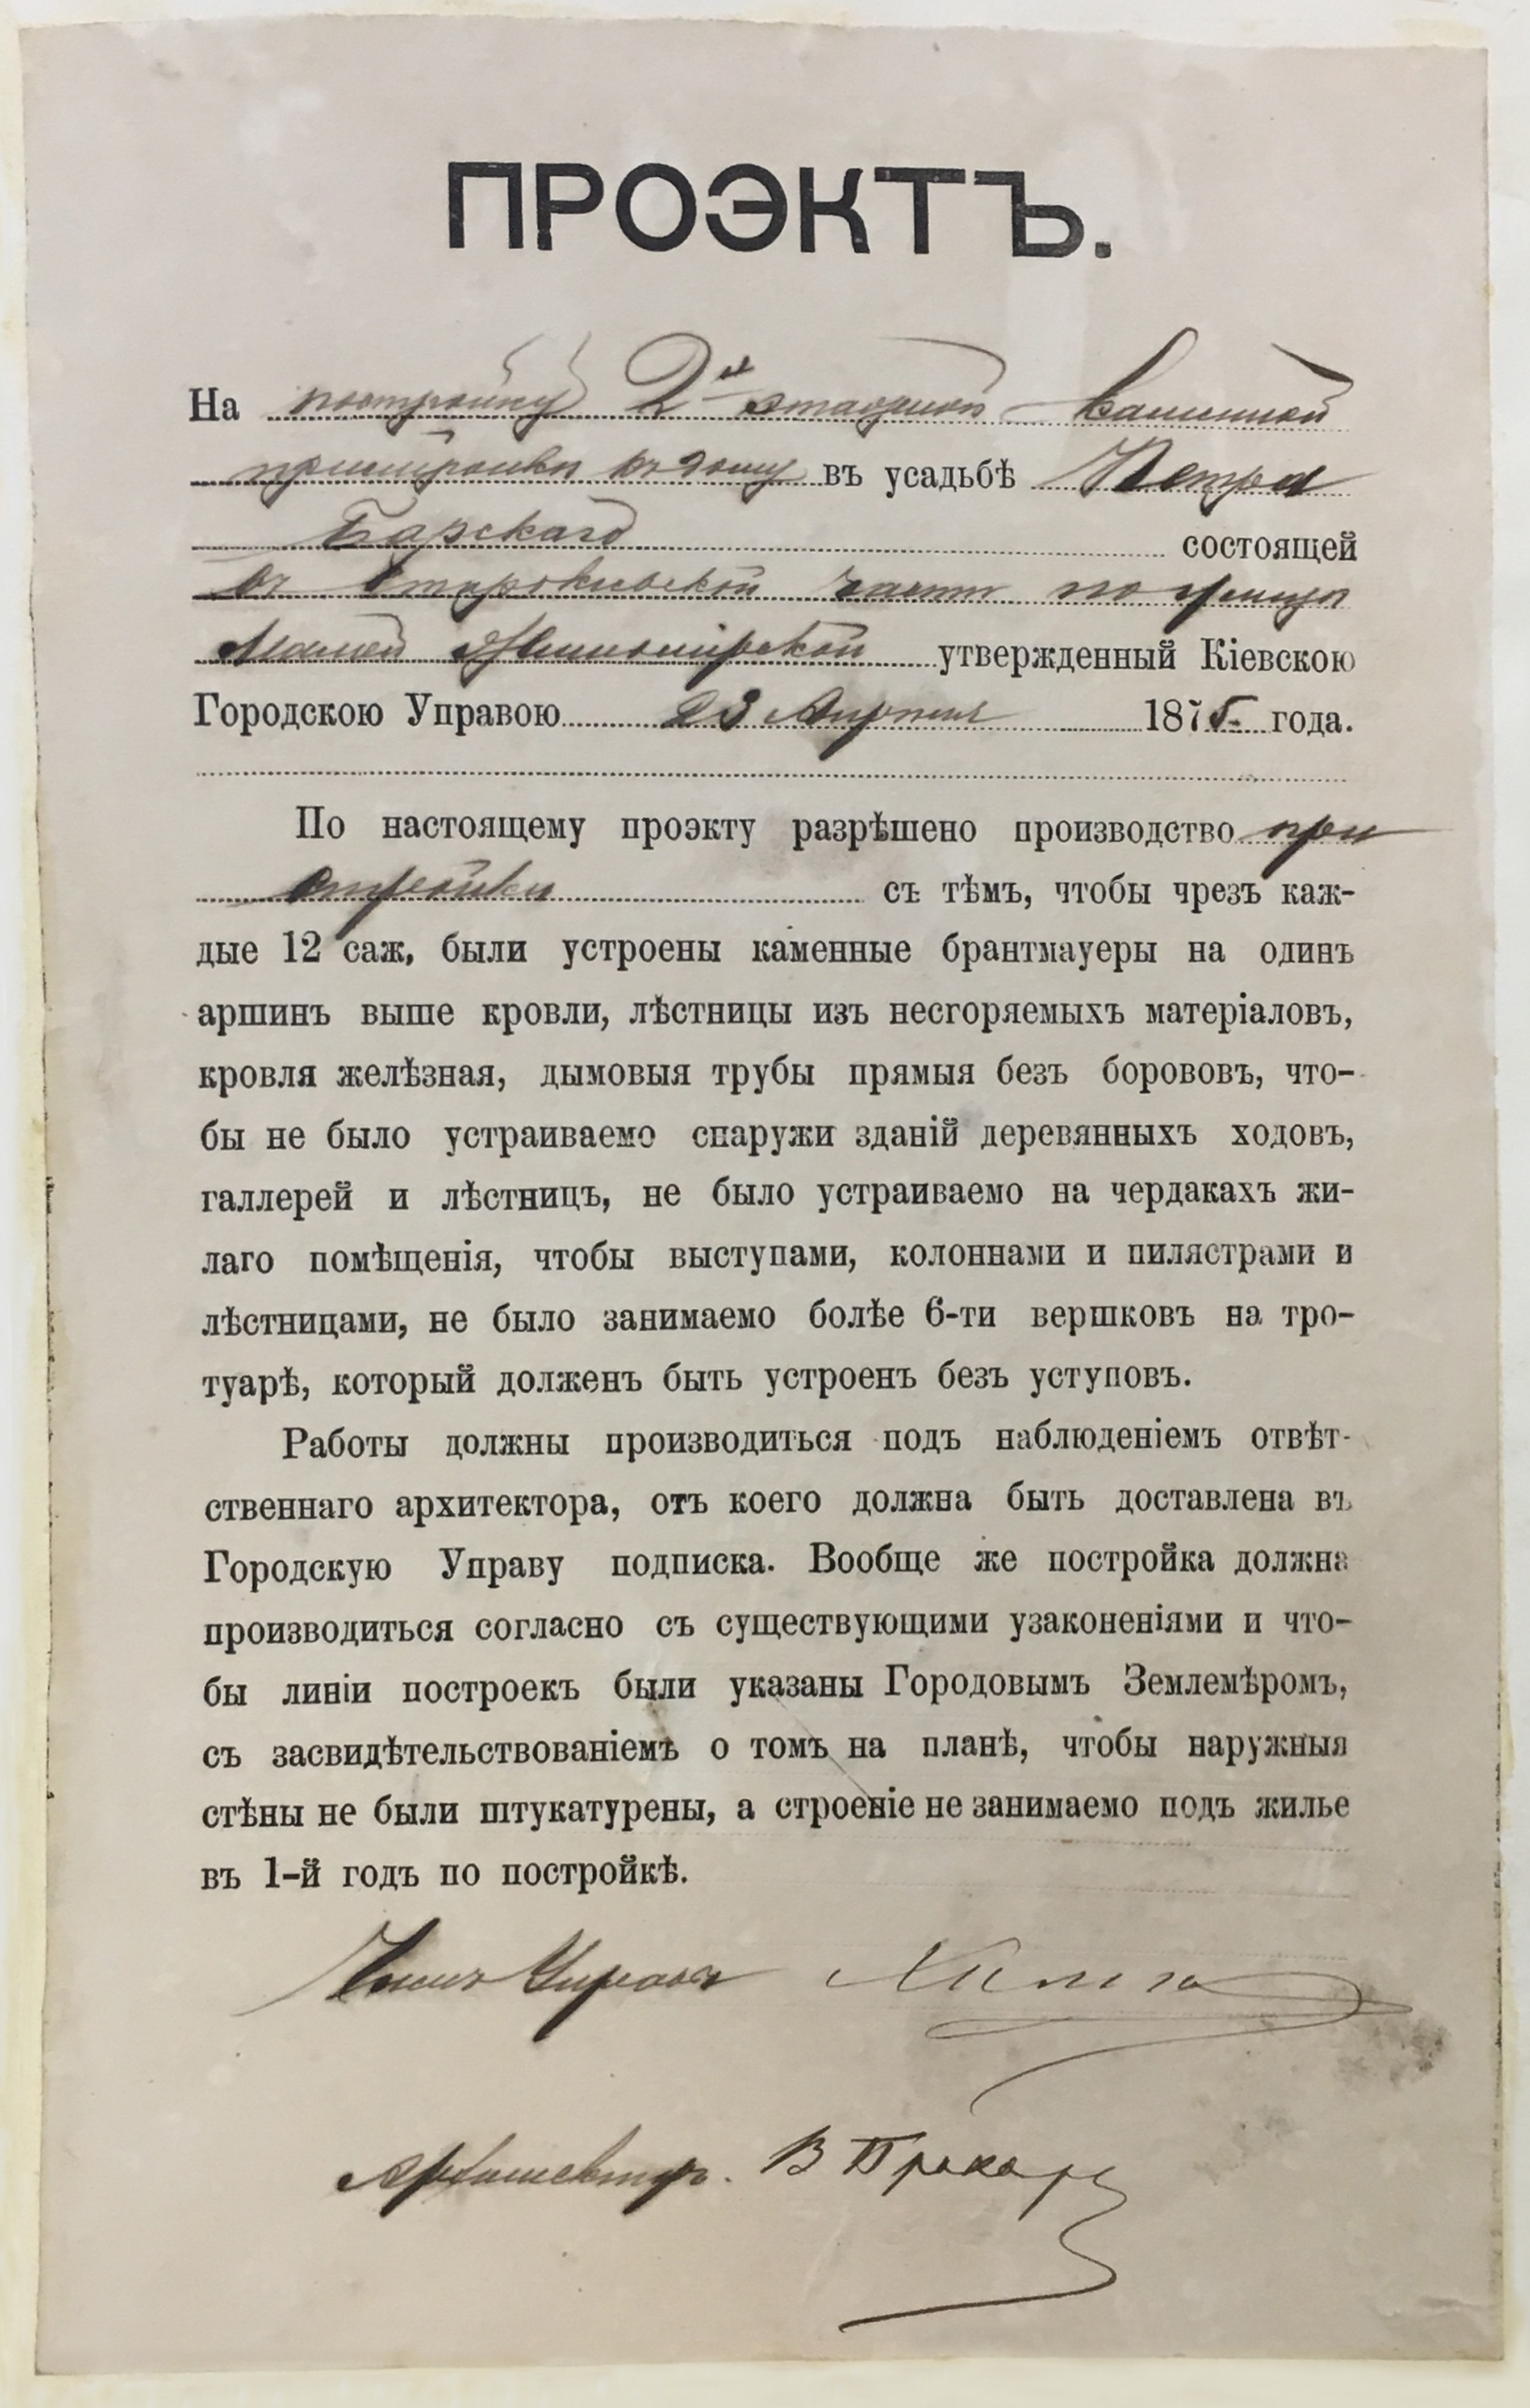 ПРОЭКТЪ.
На постройку 2х этажной каменной
пристройки къ дому въ усадьбѣ Петра
Барскаго состоящей
въ Старокіевской части по улицѣ
Малой Житомірской утвержденный Кіевскою
Городскою Управою 23 Апрѣля 1875 года.
По настоящему проэкту разрѣшено производство при
стройки съ тѣмъ, чтобы чрезъ каж-
дые 12 саж, были устроены каменные брантмауеры на одинъ
аршинъ выше кровли, лѣстницы изъ несгоряемыхъ матеріаловъ,
кровля желѣзная, дымовыя трубы прямыя безъ борововъ, что-
бы не было устраиваемо снаружи зданій деревянныхъ ходовъ,
галлерей и лѣстницъ, не было устраиваемо на чердакахъ жи-
лаго помѣщенія, чтобы выступами, колоннами и пилястрами и
лѣстницами, не было занимаемо болѣе 6-ти вершковъ на тро-
туарѣ, который долженъ быть устроенъ безъ уступовъ.
Работы должны производиться подъ наблюденіемъ отвѣт-
ственнаго архитектора, отъ коего должна быть доставлена въ
Городскую Управу подписка. Вообще же постройка должна
производиться согласно съ существующими узаконеніями и что-
бы линіи построекъ были указаны Городовымъ Землемѣромъ,
съ засвидѣтельствованіемъ о томъ на планѣ, чтобы наружныя
стѣны не были штукатурены, а строеніе не занимаемо подъ жилье
въ 1-й годъ по постройкѣ.
Членъ Управы
Архитекторъ. В